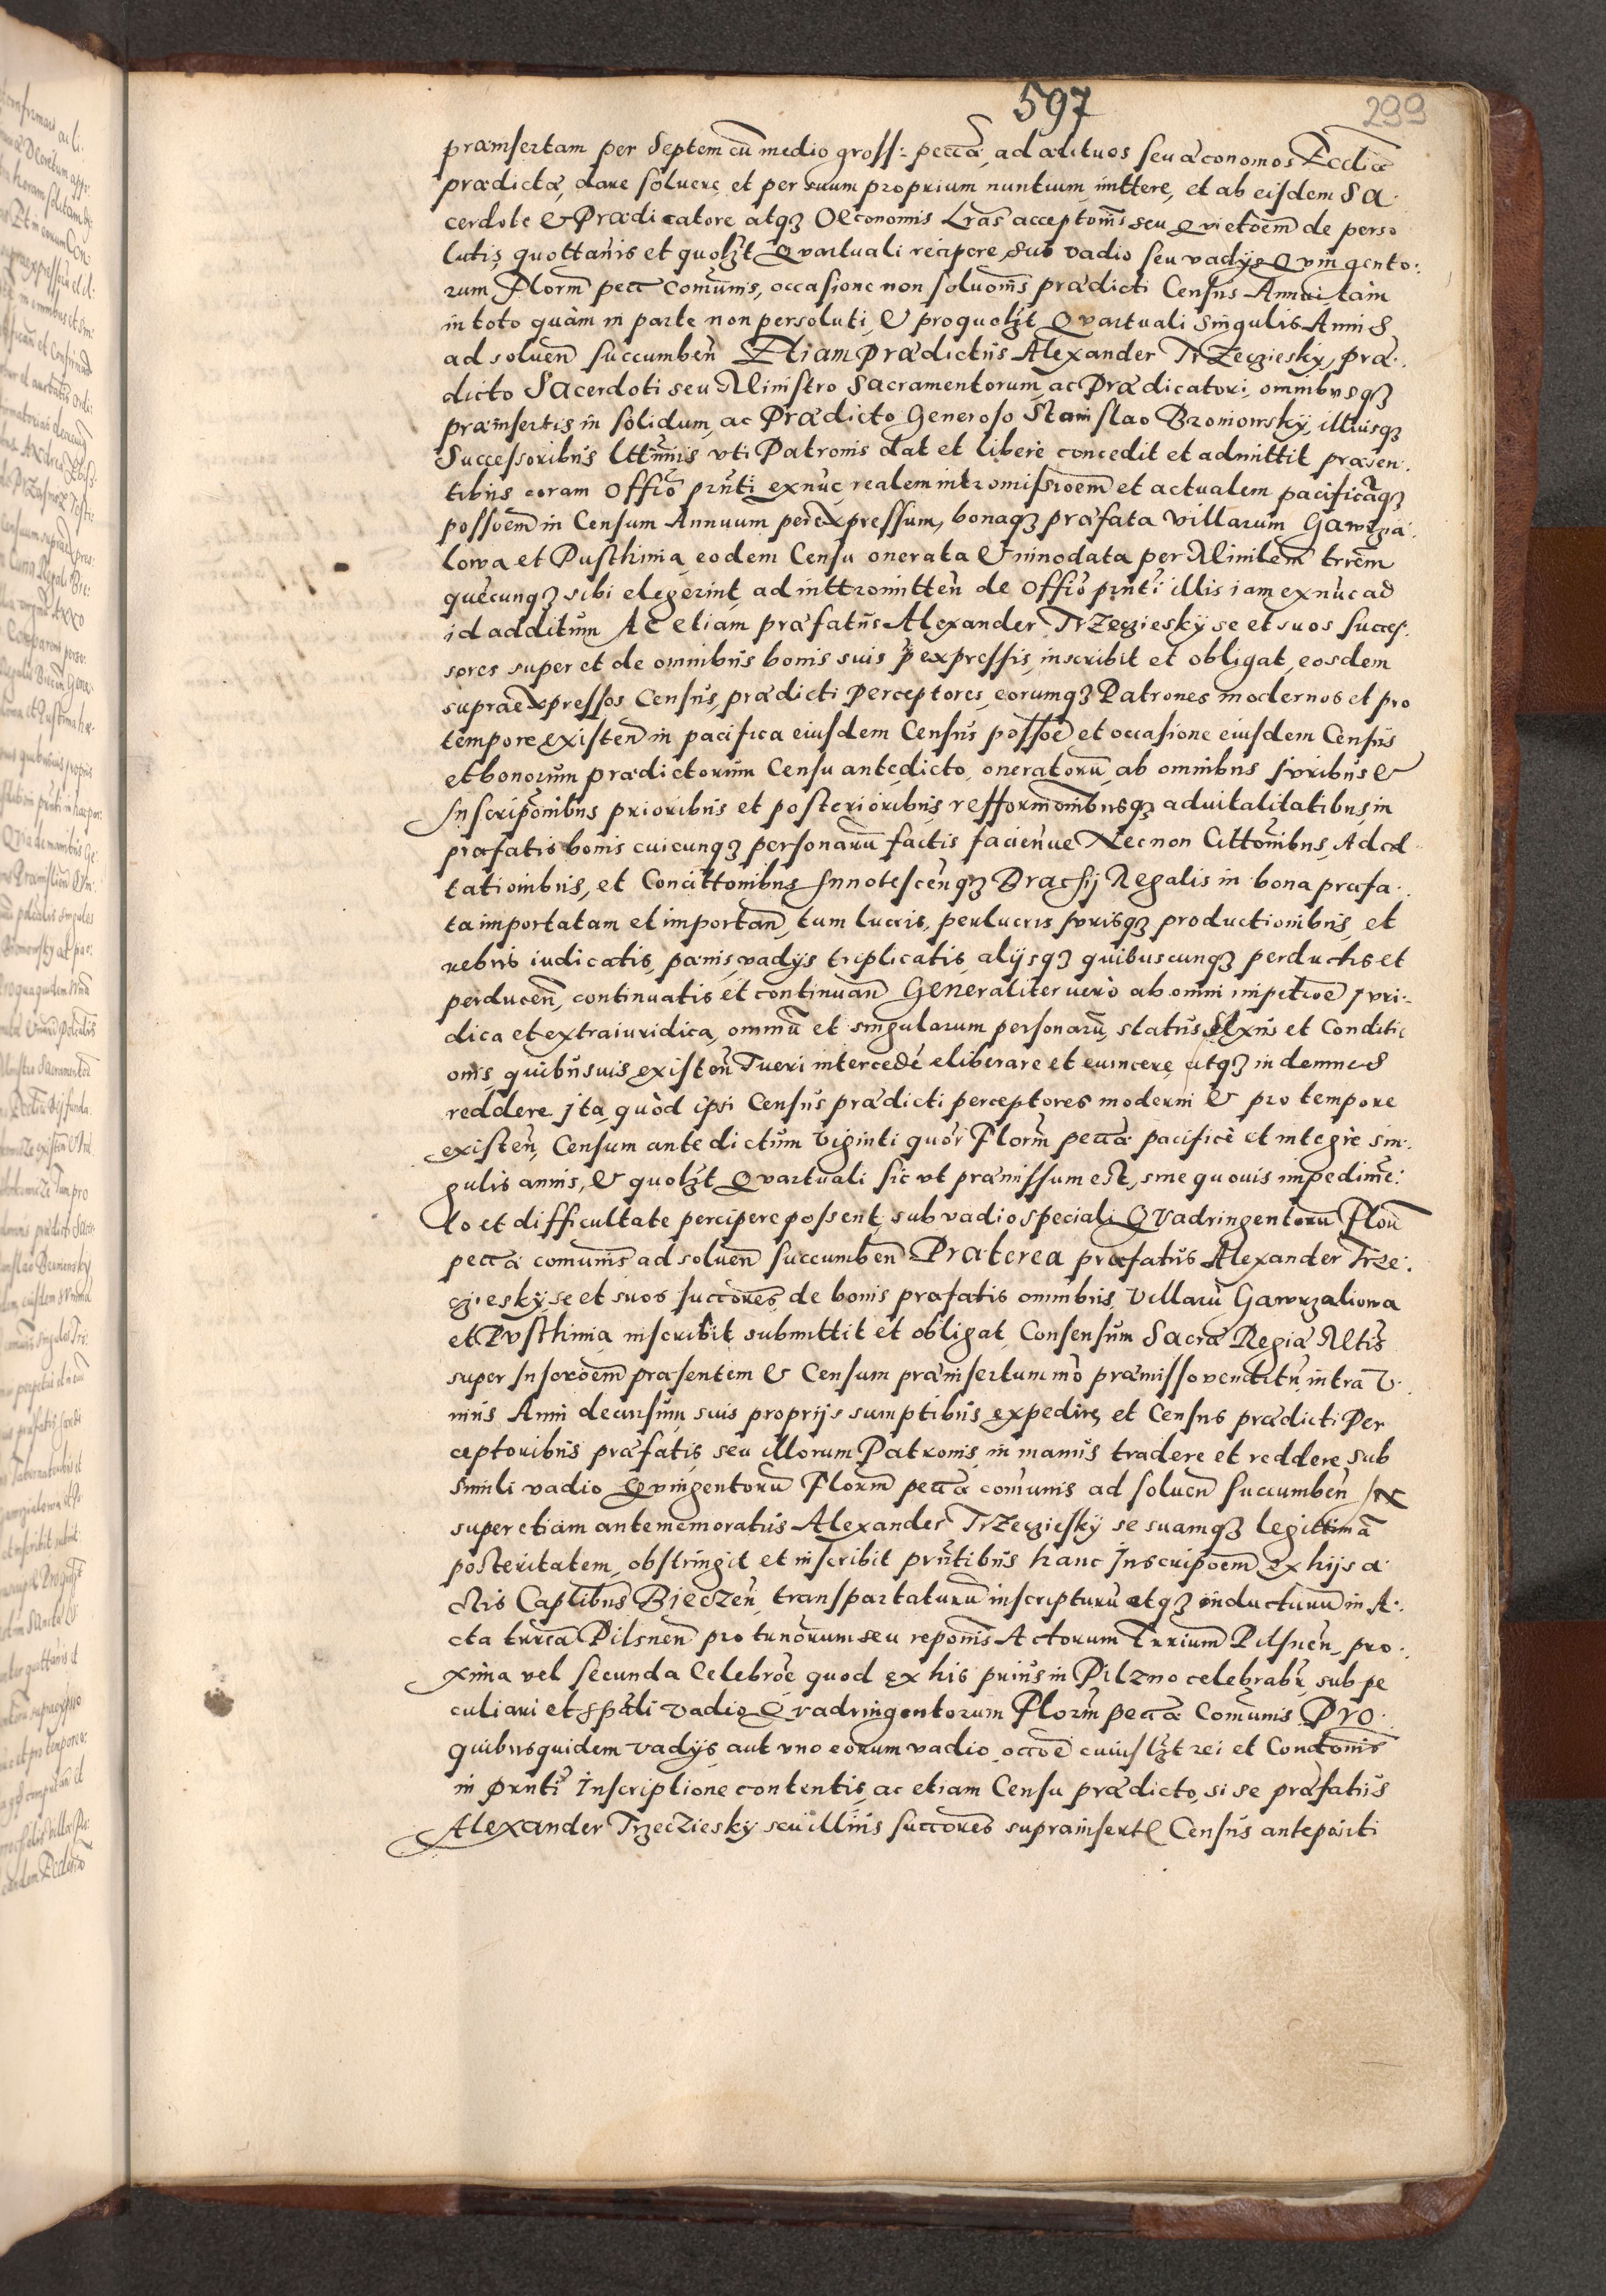 597
299
præinsertam per Septem cū medio gross: peccæ, ad ædituos seu æconomos Ecclīæ
prædictæ, dare soluere, et per suum proprium nuntium mittere, et ab eisdem Sa
cerdote & Prædicatore atqȝ Oeconomis Lras acceptōnis seu qvietōem de perso
lutis, quottannis et quolȝt Qvartuali recipere, sub vadio seu vadijs Qvingento:
rum Florn̄ pecc comunis, occasione non soluōnis prædicti Census Annui, tam
in toto quàm in parte non persoluti, & pro quolȝt Qvartuali singulis Annis
ad soluen̄ succumben̄ Etiam Prædictus Alexander Trzecziesky, præ.
dicto Sacerdoti seu Ministro Sacramentorum, ac Prædicatori, omnibusqȝ
præinsertis in solidum, ac Prædicto Generoso Stanislao Bronowsky, illiusqȝ
Successoribus lttmis vti Patronis dat et libere concedit et admittit præsen.
tibus coram Offīo prn̄ti exnūc realem intromissioem et actualem pacificāqȝ
possōem in Censum Annuum per expressum, bonaqȝ præfata villarum Gawrza
lowa et Pusthinia, eodem Censu onerata & innodata per Ministm̄ trrēm
quēcunqȝ sibi elegerint, ad inttromitten̄ de Offīo prn̄ti illis iam exnūc ad
id additum Ac etiam præfatus Alexander Trzeczieskÿ se et suos succes.
sores super et de omnibus bonis suis p̄expressis, inscribit et obligat, eosdem
supraexpressos Census, prædicti perceptores, eorumqȝ Patrones modernos et pro
tempore existen̄ in pacifica eiusdem Census possōe et occasione eiusdem Census
et bonorum prædictorum Censu antedicto, oneratorū, ab omnibus Iuribus &
Inscripōnibus prioribus et posterioribus, reformōnibusqȝ aduitalitatibus, in
præfatis bonis cuicunqȝ personarū factis faciēnue Necnon Cittōnibus, Adci
tationibus, et Concittōnibus, Innotescēnqȝ Brachij Regalis in bona præfa.
ta importatam et importan̄, tum lucris, perlucris Iurisqȝ productionibus, et
rebus iudicatis, pœnis, vadijs triplicatis, alijsqȝ quibuscunqȝ perductis et
perducen̄, continuatis et continuan̄ Generaliter uero ab omni impetiōe Iuri.
dica et extraiuridica, omniū et singularum personarū, status, Sexus et Conditi
onis, quibusuis existen̄ Tueri intercedē eliberare et euincere, atqȝ indemnes
reddere Ita, quòd ipsi Census prædicti perceptores moderni & pro tempore
existen̄, Censum antedictum viginti quor̄ Florn̄ peccæ pacificè et integrè sin.
gulis annis, & quolȝt Qvartuali sic vt præmissum est, sine quouis impedimē:
to et difficultate percipere possent, sub vadio speciali Qvadringentorū Florn̄
peccæ comunis ad soluen̄ succumben̄ Præterea præfatus Alexander Trze.
cziesky, se et suos succōres, de bonis præfatis omnibus, Villarū Gawrzaliowa
et Pvsthinia inscribit, submittit et obligat, Consensum Sacræ Regiæ Mtis
super Inscrōem præsentem & Censum præinsertum mō præmisso venditū, intra V
nius Anni decursum, suis proprijs sumptibus expedire, et Census prædicti Per
ceptoribus præfatis, seu illorum Patronis, in manus tradere et reddere, sub
simili vadio qvingentorū Florn̄ peccæ comunis ad soluen̄ succumben̄ In
super etiam antememoratus Alexander Trzecziesky se suamqȝ legittimā
posteritatem, obstringit et inscribit prn̄tibus hanc Inscripōem ex hijs a
ctis Castibus Bieczen̄, transportaturū inscripturū atqȝ inducturū in A.
cta trrīa Pilsnen̄ pro tunōrum seu repōnis Actorum Trrium Pilsnen̄, pro.
xima vel secunda Celebrōe quod ex his prius in Pilzno celebrabr̄, sub pe
culiari et spāli vadio Qvadringentorum Florn̄ peccæ Comūnis Pro.
quibusquidem vadijs, aut vno eorum vadio, occōe cuiuslȝt rei et Condōnis
in prn̄ti Inscriptione contentis, ac etiam Censu prædicto, si se præfatus
Alexander Trzecziesky seu illius succōres suprainserti Census antepositi